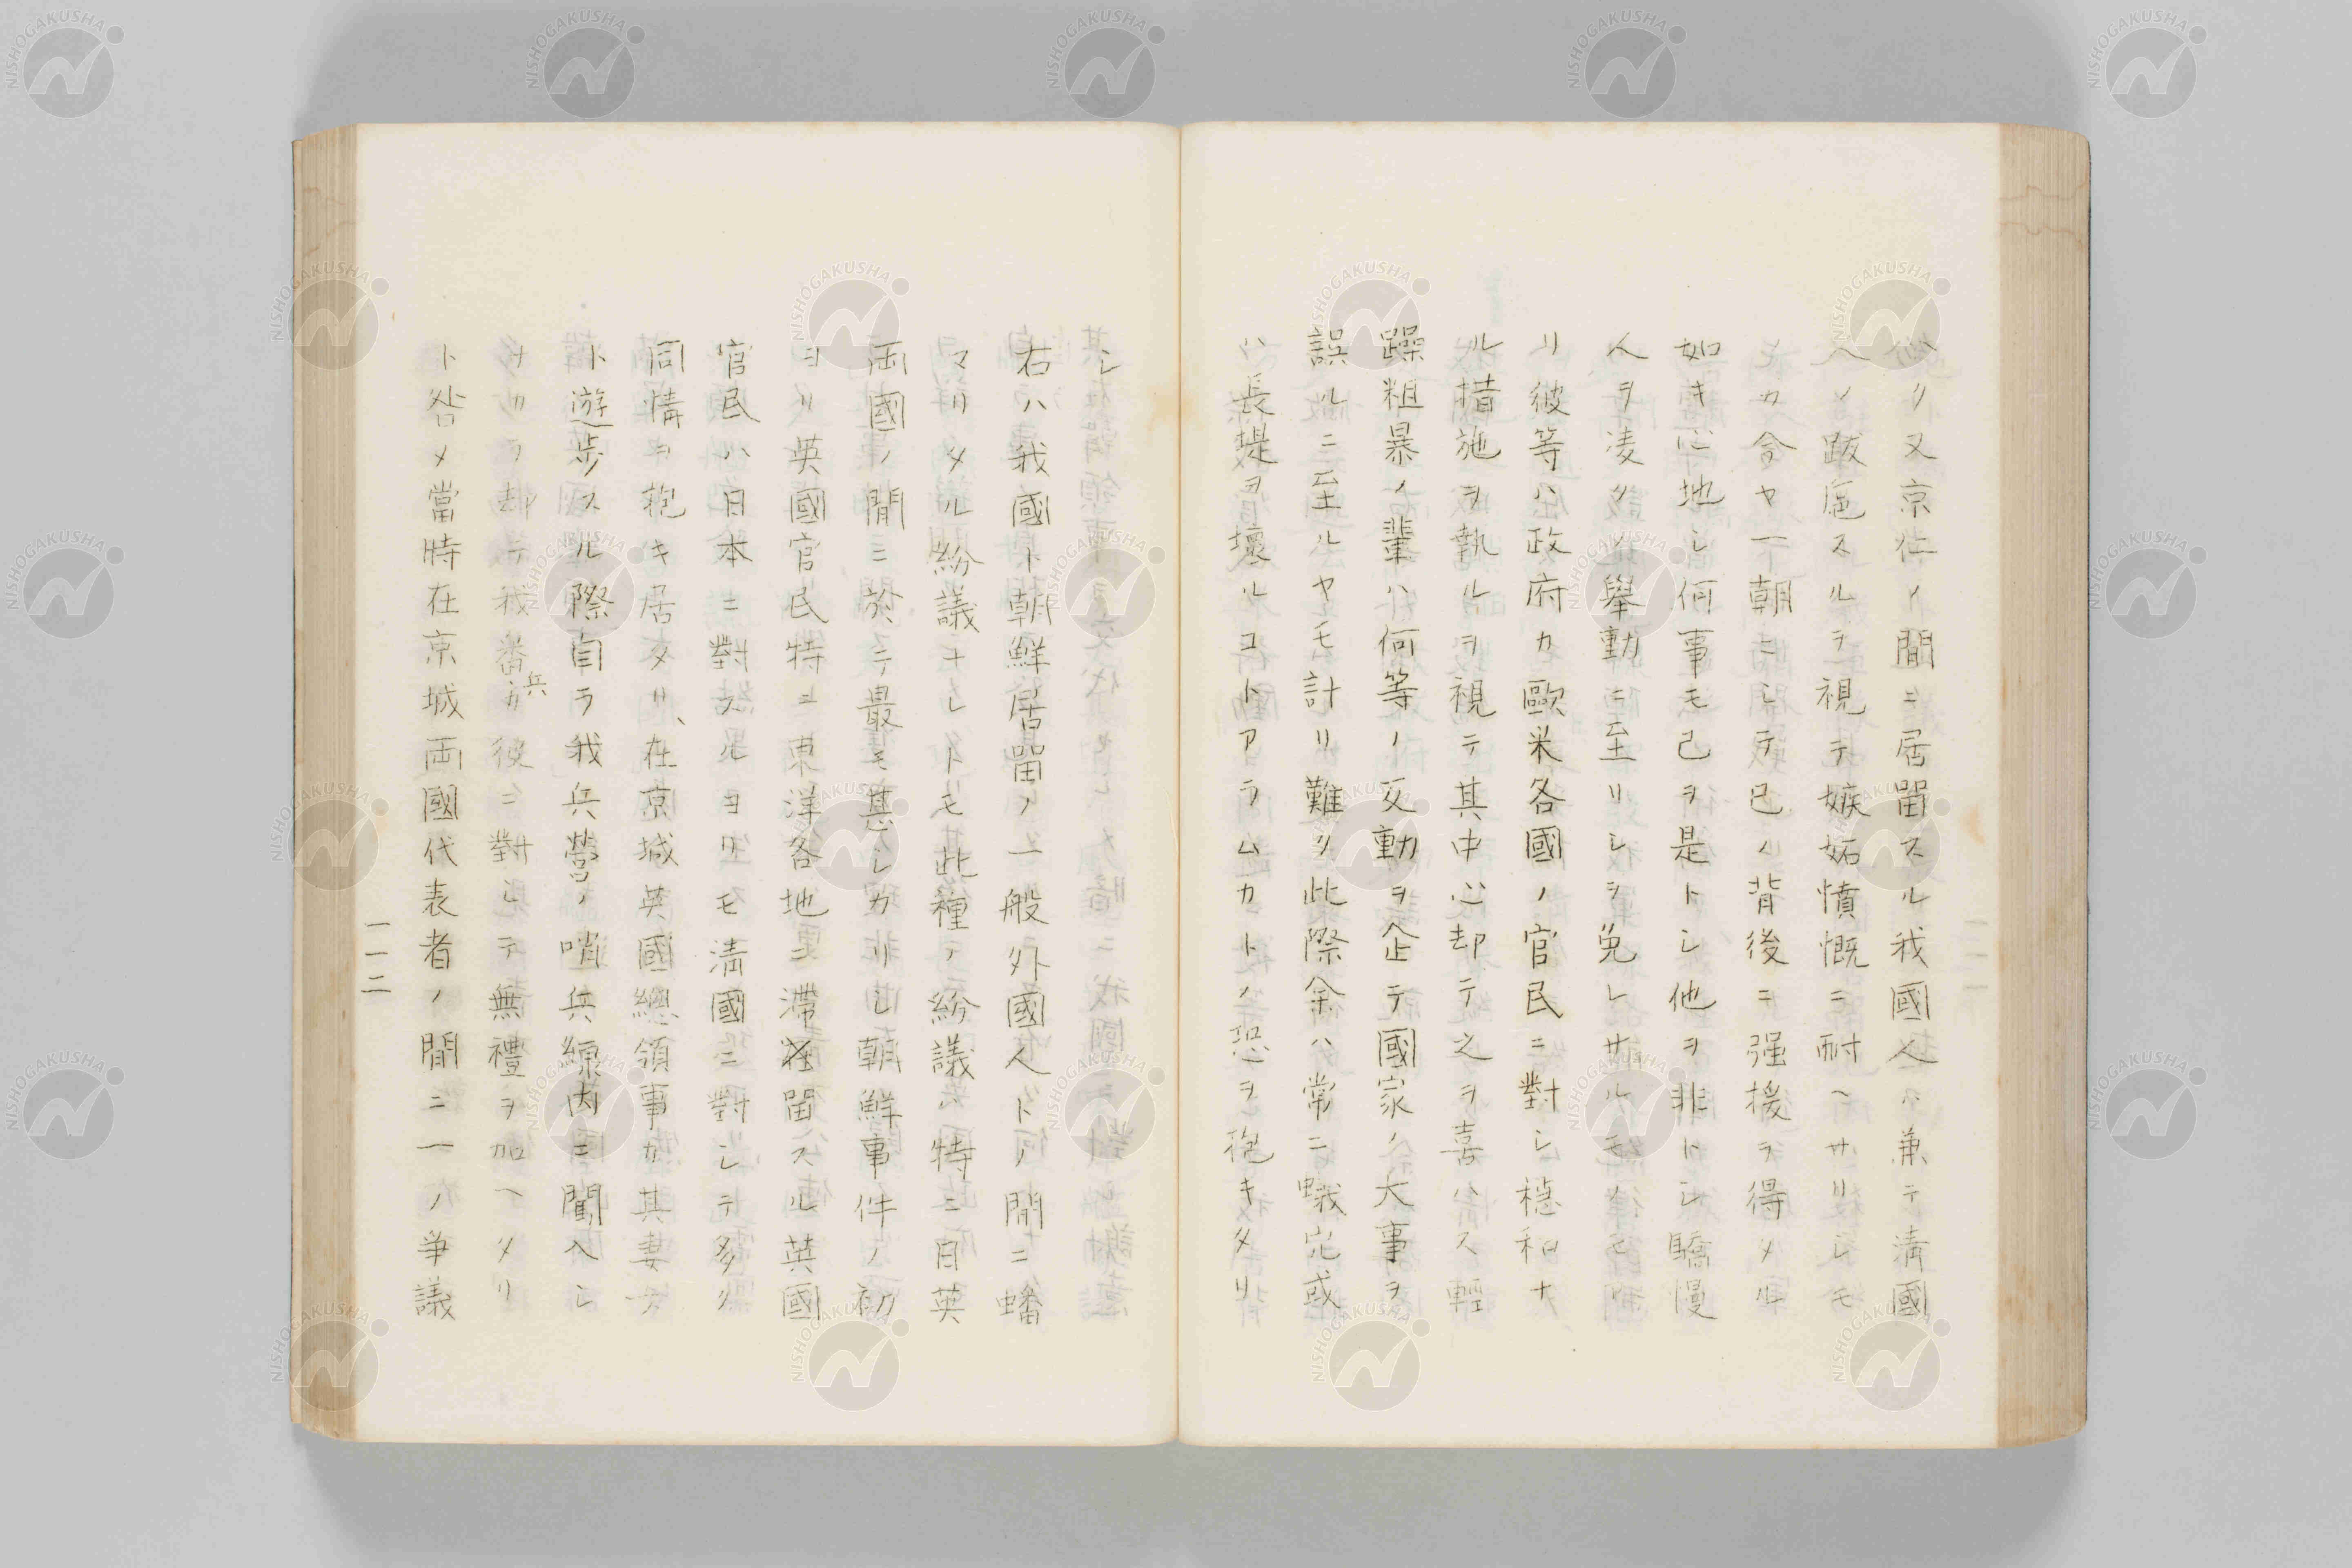 クリ又京仁ノ間ニ居留スル我國人ハ兼テ清國
人ノ跋扈スルヲ視テ嫉妬憤慨ニ耐ヘサリシモ
カ今ヤ一朝ニシテ己ノ背後ニ强援ヲ得タル
如キ心地シ何事モ己ヲ是トシ他ヲ非トシ驕慢
人ヲ凌クノ擧動ニ至リシヲ免レサルモノ
リ彼等ハ政府カ歐米各國ノ官民ニ對シ穩和ナ
ル措施ヲ執ルヲ視テ其中心却テ之ヲ喜ハス輕
躁粗暴ノ輩ハ何等ノ反動ヲ企テ國家ノ大事ヲ
誤ルニ至ルヤモ計リ難ク此際余ハ常ニ蟻穴或
ハ長堤ヲ壞ルコトアラムカトノ恐ヲ抱キタリ
シ
右ハ我國ト朝鮮居留ノ一般外國人トノ間ニ蟠
マリタル紛議ナレトモ此種ノ紛議ハ特ニ日英
両國ノ間ニ於テ最モ甚シカリシ朝鮮事件ノ初
ヨリ英國官民特ニ東洋各地ニ滞留スル英國
官民ハ日本ニ對スルヨリモ清國ニ對シテ多ク
同情ヲ抱キ居タリ、在京城英國總領事カ其妻ナ
ト遊步スル際自ラ我兵營ノ哨兵線内ニ闖入シ
ナカラ却テ我番兵カ彼ニ對シテ無禮ヲ加ヘタリ
ト咎メ當時在京城両國代表者ノ間ニ一ノ争議
一一二